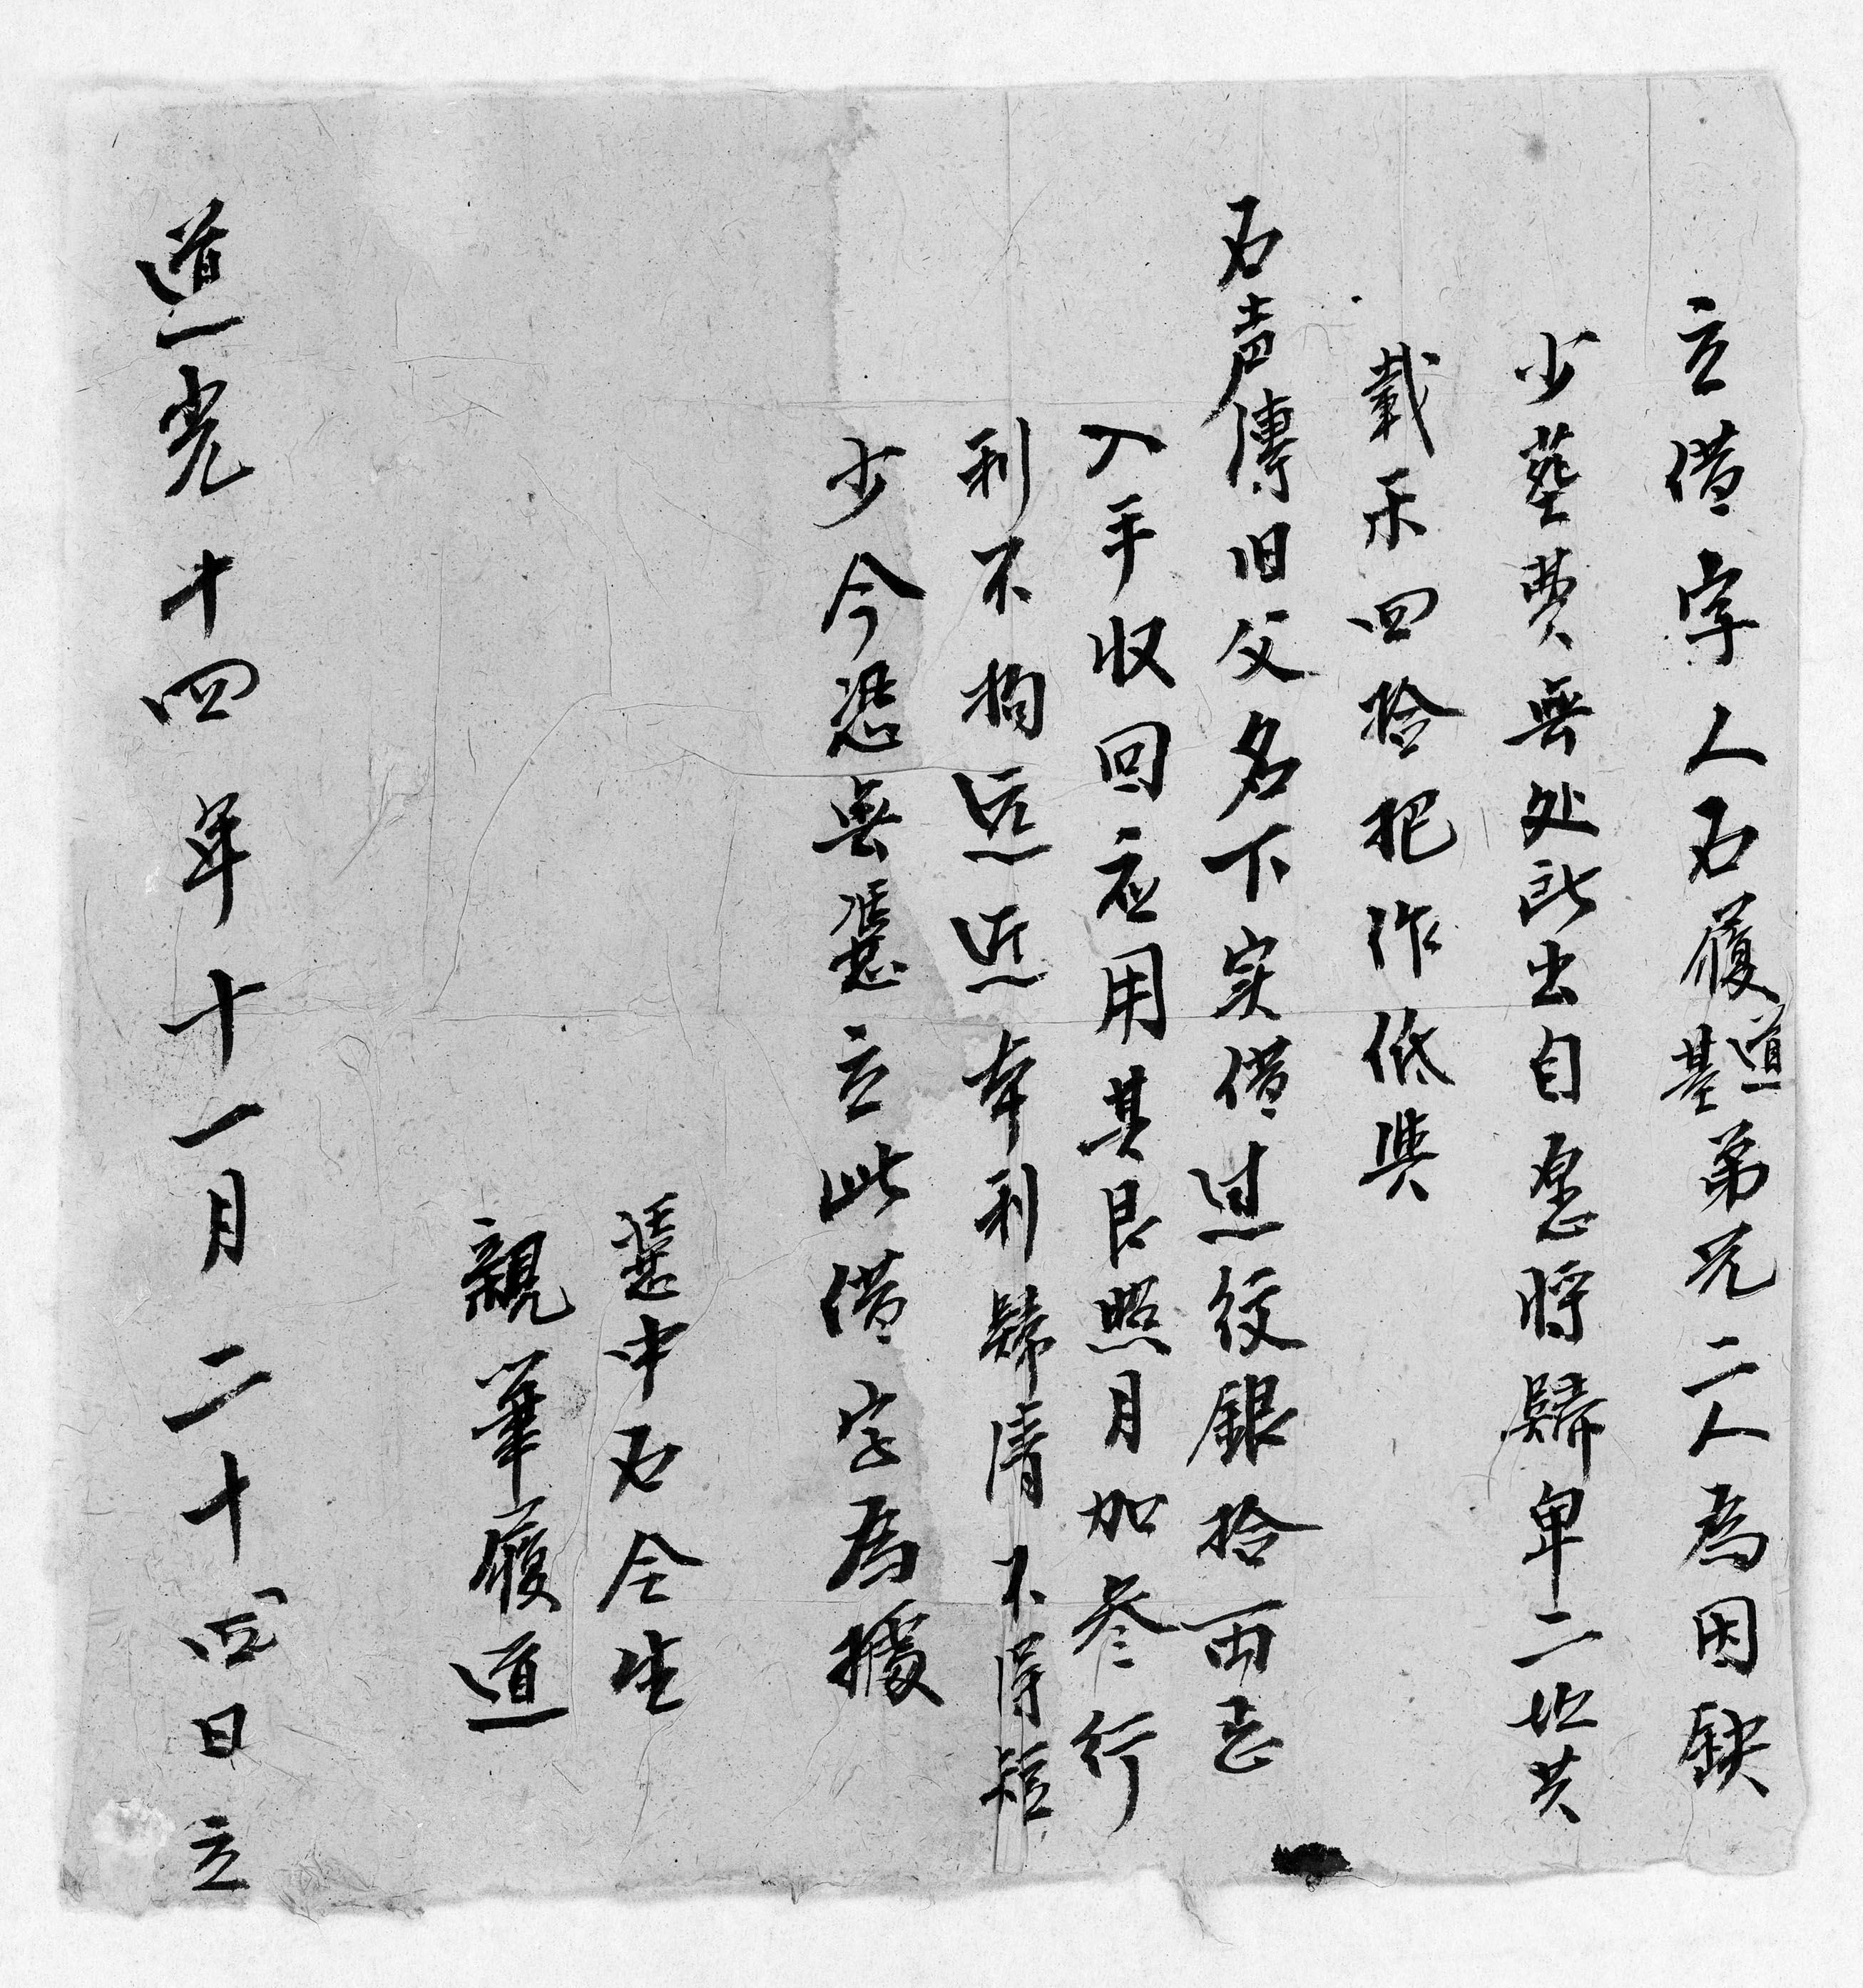 立借字人石履道基弟兄二人為因缺
少葬費無处所出自愿將歸卑二坵共
載禾四拾把作低與
石声傳旧父名下实借过纹銀拾両忘
入手収回应用其艮照月加叁行
利不拘远近本利歸清不得短
少今恐無憑立此借字為據
憑中石全生
親筆履道
道光十四年十一月二十四日立